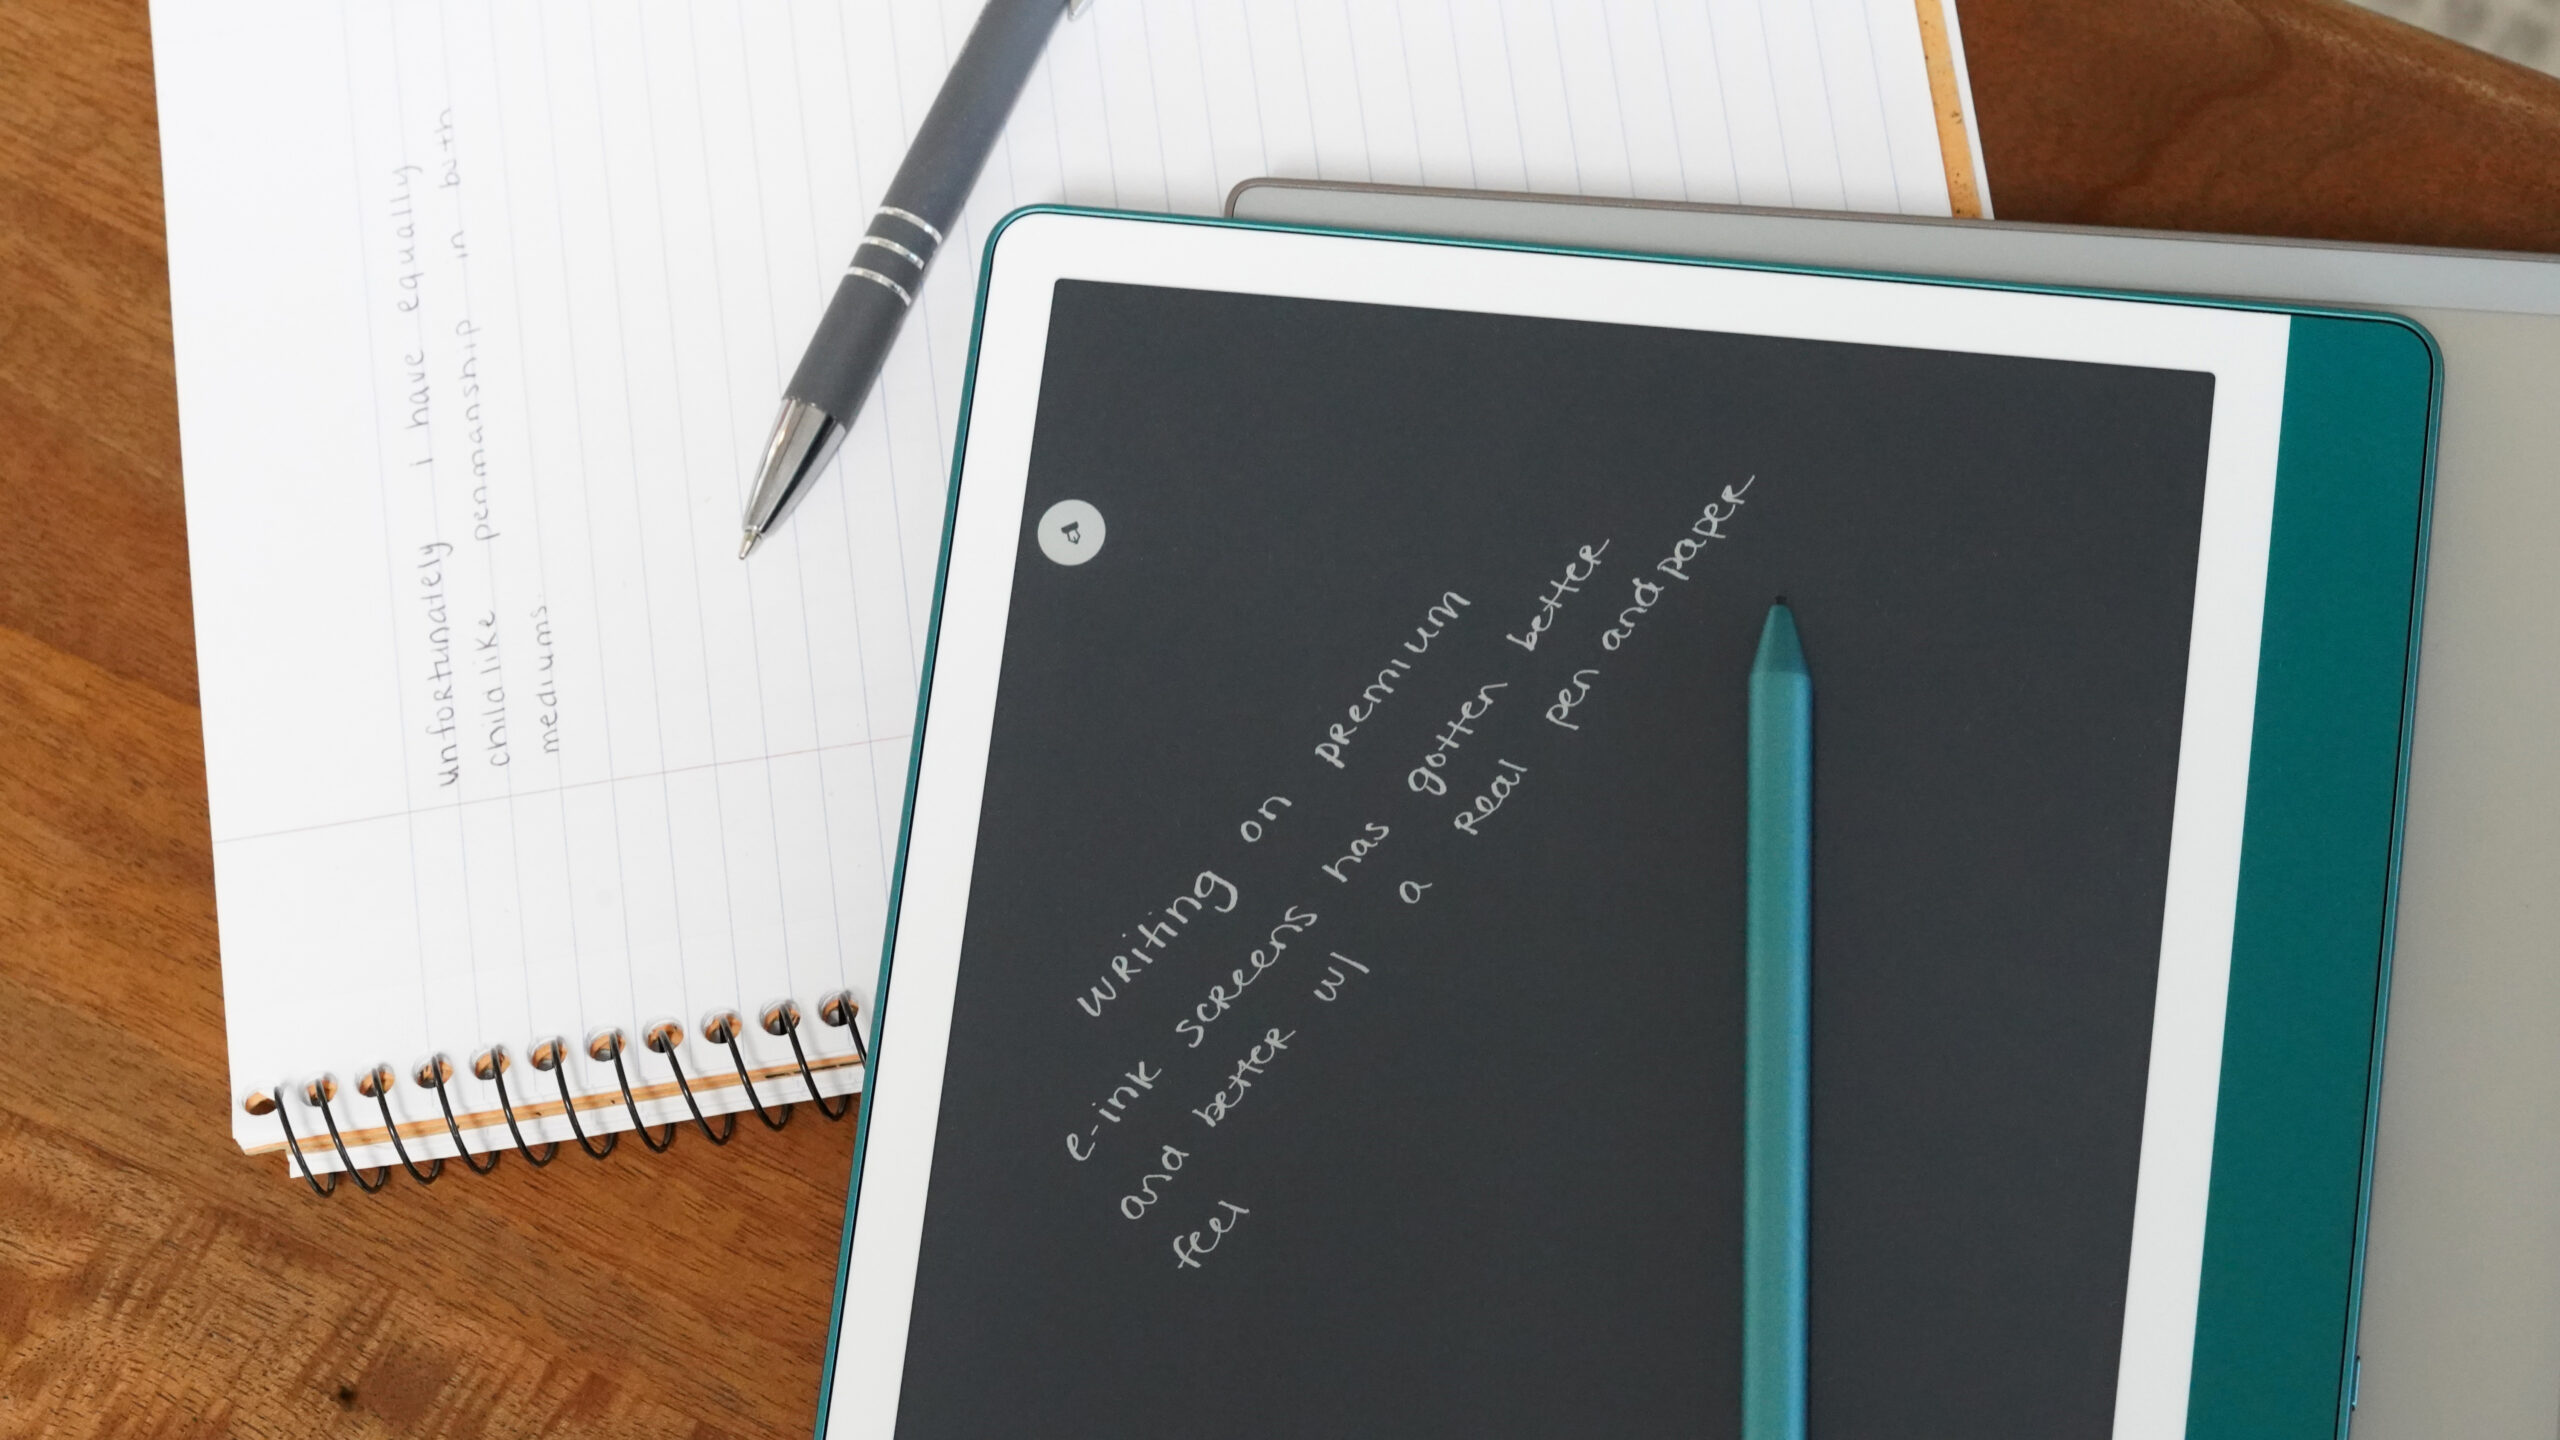 unfortunately i have equally
childlike penmanship in both
mediums.
writing on premium
e-ink screens has gotten better
and better w/ a real pen and paper
feel